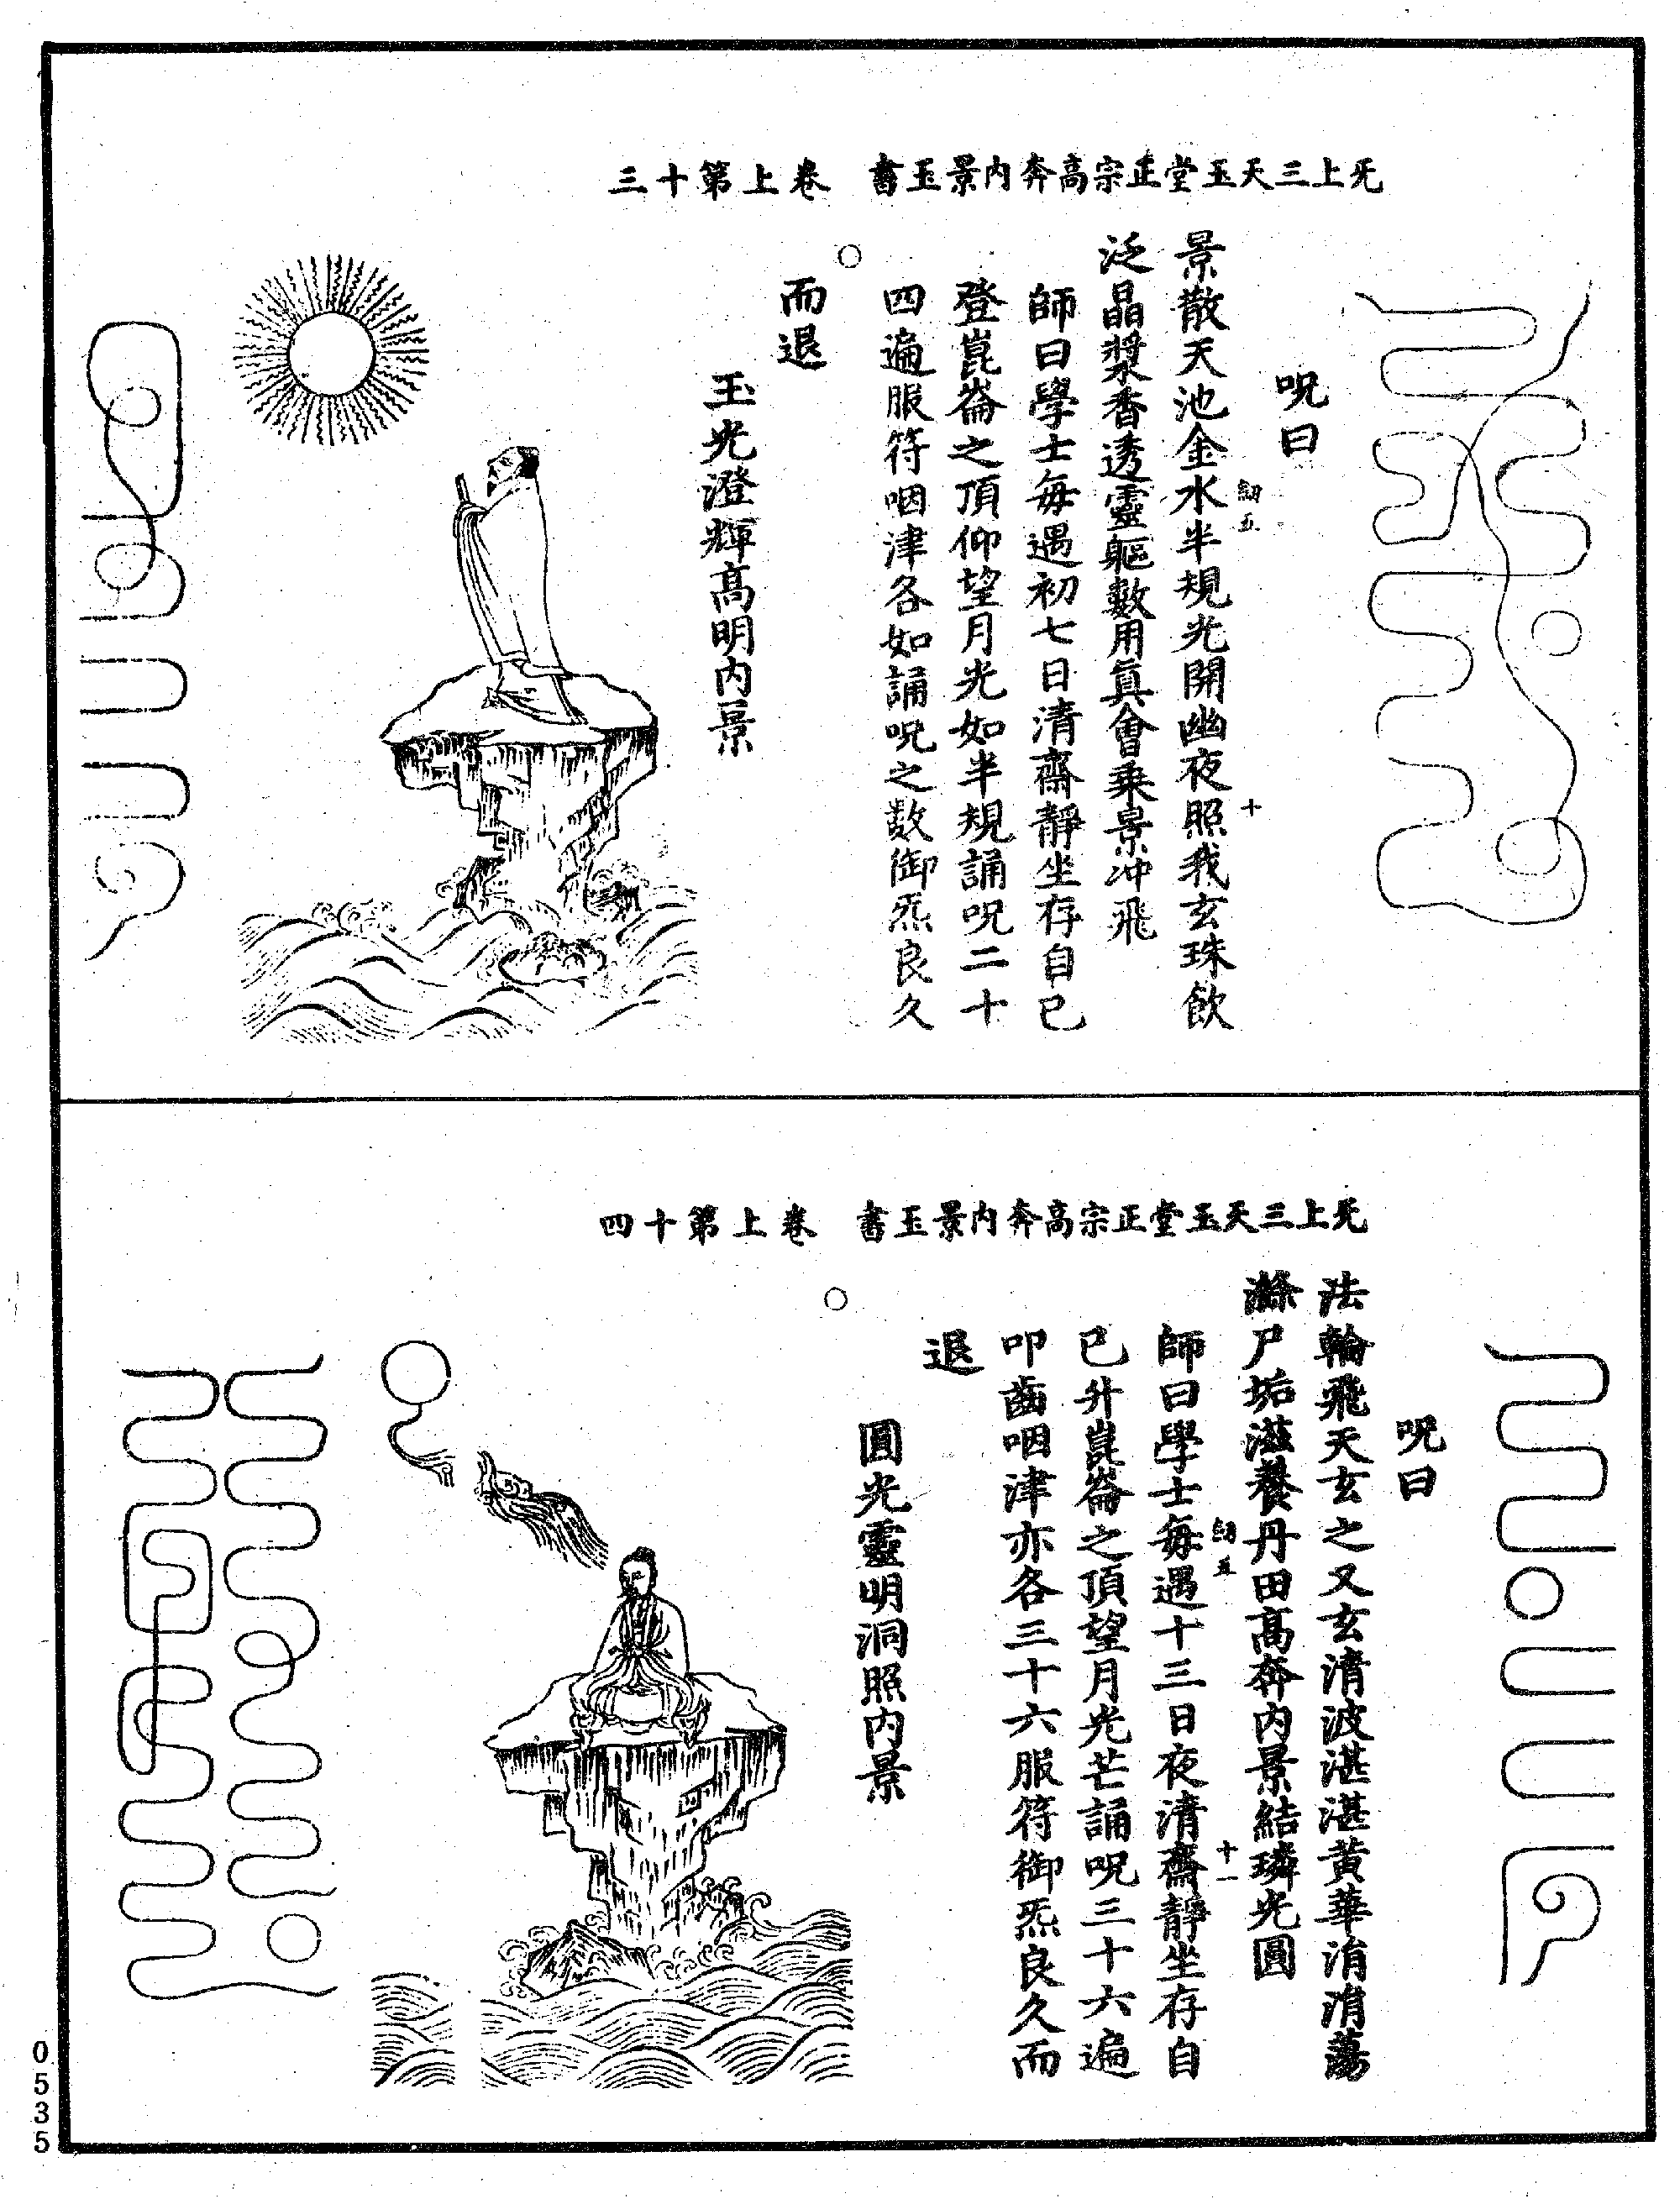 无上三天玉堂正宗高奔內景玉書　卷上第十三
呪曰
景散天池金水半規光開幽夜照我玄珠飲
泛晶漿香透靈軀數用眞會乘景冲飛
師曰學士每遇初七日清齋靜坐存自已
登崑崙之頂仰望月光如半規誦呪二十
四遍服符咽津各如誦呪之数御炁良久
而退
○
玉光澄輝高明内景
五
十
无上三天玉堂正宗高奔内景玉書　卷上第十四
呪曰
法輪飛天玄之又玄清波湛湛黄華涓涓蕩
滌尸垢滋養丹田高奔内景結璘光圓
師曰學士每遇十三日夜清齋靜坐存自
已升崑崙之頂望月光芒誦呪三十六遍
叩齒咽津亦各三十六服符御炁良久而
退
○
圓光靈明洞照内景
五
十一
0535